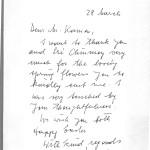 28 March
Dear Mr. Kumar,
I want to thank you
and Sri Chinmoy very
much for the lovely
spring flowers you so
kindly sent me. I
was very touched by
your thoughtfulness.
We wish you both
Happy Easter
With kind regards